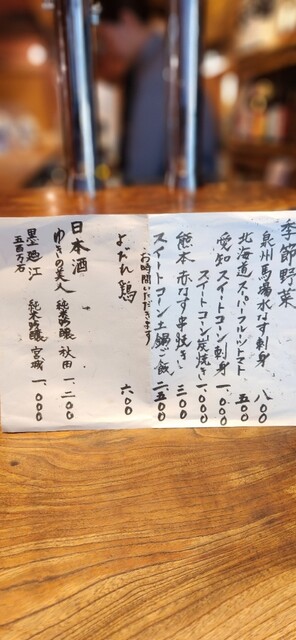 季節野菜
泉州馬場水なす刺身 八〇〇
北海道スーパーフルーツトマト 五〇〇
愛知 スイートコーン刺身 一、〇〇〇
スイートコーン炭焼き 一、〇〇〇
熊本 赤なす串焼き 三〇〇
スイートコーン土鍋ご飯 二、五〇〇
お時間いただきます
よだれ鶏 六〇〇
日本酒
ゆきの美人 純米吟醸 秋田 一、二〇〇
墨廼江 純米吟醸 宮城 一、〇〇〇
五百万石